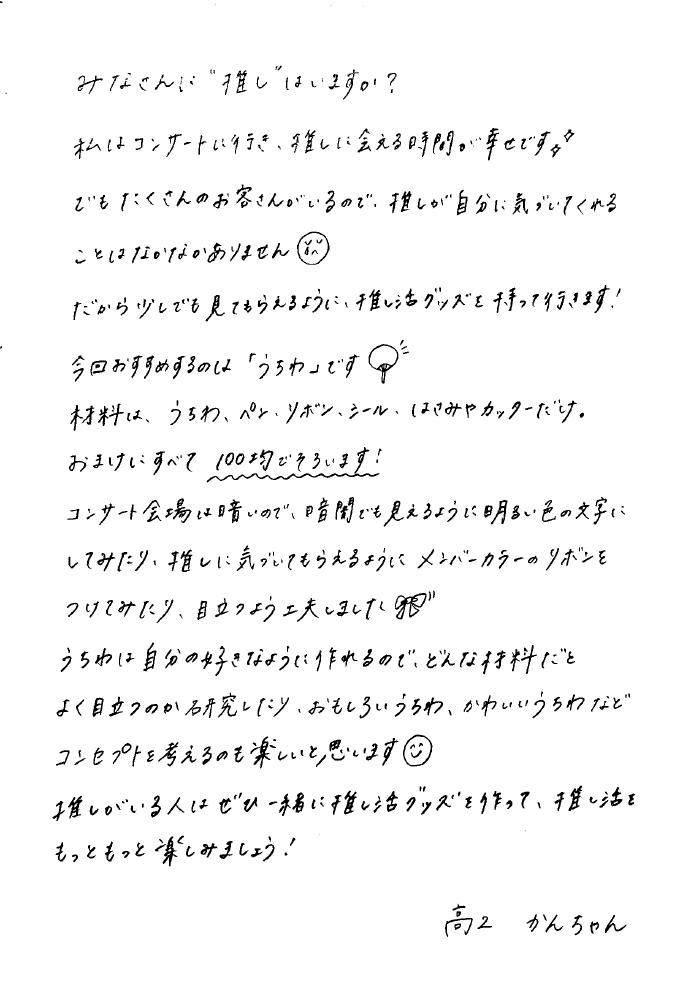 みなさんに"推し"はいますか?
私はコンサートに行き、推しに会える時間が幸せです
でもたくさんのお客さんがいるので、推しが自分に気づいてくれる
ことはなかなかありません
だから少しでも見てもらえるように、推し活グッズを持って行きます!
今回おすすめするのは「うちわ」です
材料は、うちわ、ペン、リボン、シール、はさみやカッターだけ。
おまけにすべて100均でそろいます!
コンサート会場は暗いので、暗闇でも見えるように明るい色の文字に
してみたり、推しに気づいてもらえるようにメンバーカラーのリボンを
つけてみたり、目立つよう工夫しました
うちわは自分の好きなように作れるので、どんな材料だと
よく目立つのか研究したり、おもしろいうちわ、かわいいうちわなど
コンセプトを考えるのも楽しいと思います
推しがいる人はぜひ一緒に推し活グッズを作って、推し活を
もっともっと楽しみましょう!
高2 かんちゃん